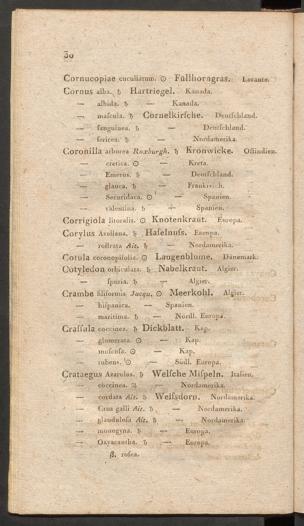 30
Cornucopiae cucullatum. ☉ Füllhorngras. Levante.
Cornus alba. ♄ Hartriegel. Kanada.
— albida. ♄ — Kanada.
— mascula. ♄ Cornelkirſche. Deutſchland.
— ſanguinea. ♄ — Deutſchland.
— ſericea. ♄ — Nordamerika.
Coronilla arborea Roxburgh. ♄ Kronwicke. Oſtindien.
— cretica. ☉ — Kreta.
— Emerus. ♄ — Deutſchland.
— glauca. ♄ — Frankreich.
— Securidaca. ☉ — Spanien.
— valentina. ♄ — Spanien.
Corrigiola litoralis. ☉ Knotenkraut. Europa.
Corylus Avellana. ♄ Haſelnuſs. Europa.
— roſtrata Ait. ♄ — Nordamerika.
Cotula coronopifolia. ☉ Laugenblume. Dänemark.
Cotyledon orbiculata. ♄ Nabelkraut. Algier.
— ſpuria. ♄ — Algier.
Crambe filiformis Jacqu. ☉ Meerkohl. Algier.
— hiſpanica. — Spanien.
— maritima. ♄ — Nördl. Europa.
Craſſula coccinea. ♄ Dickblatt. Kap.
— glomerata. ☉ — Kap.
— muſcoſa. ☉ — Kap.
— rubens. ☉ — Südl. Europa.
Crataegus Azarolus. ♄ Welſche Miſpeln. Italien.
— coccinea. ♄ — Nordamerika.
— cordata Ait. ♄ Weiſsdorn. Nordamerika.
— Crus galli Ait. ♄ — Nordamerika.
— glanduloſa Ait. ♄ — Nordamerika.
— monogyna. ♄ — Europa.
— Oxyacantha. ♄ — Europa.
β. roſea.